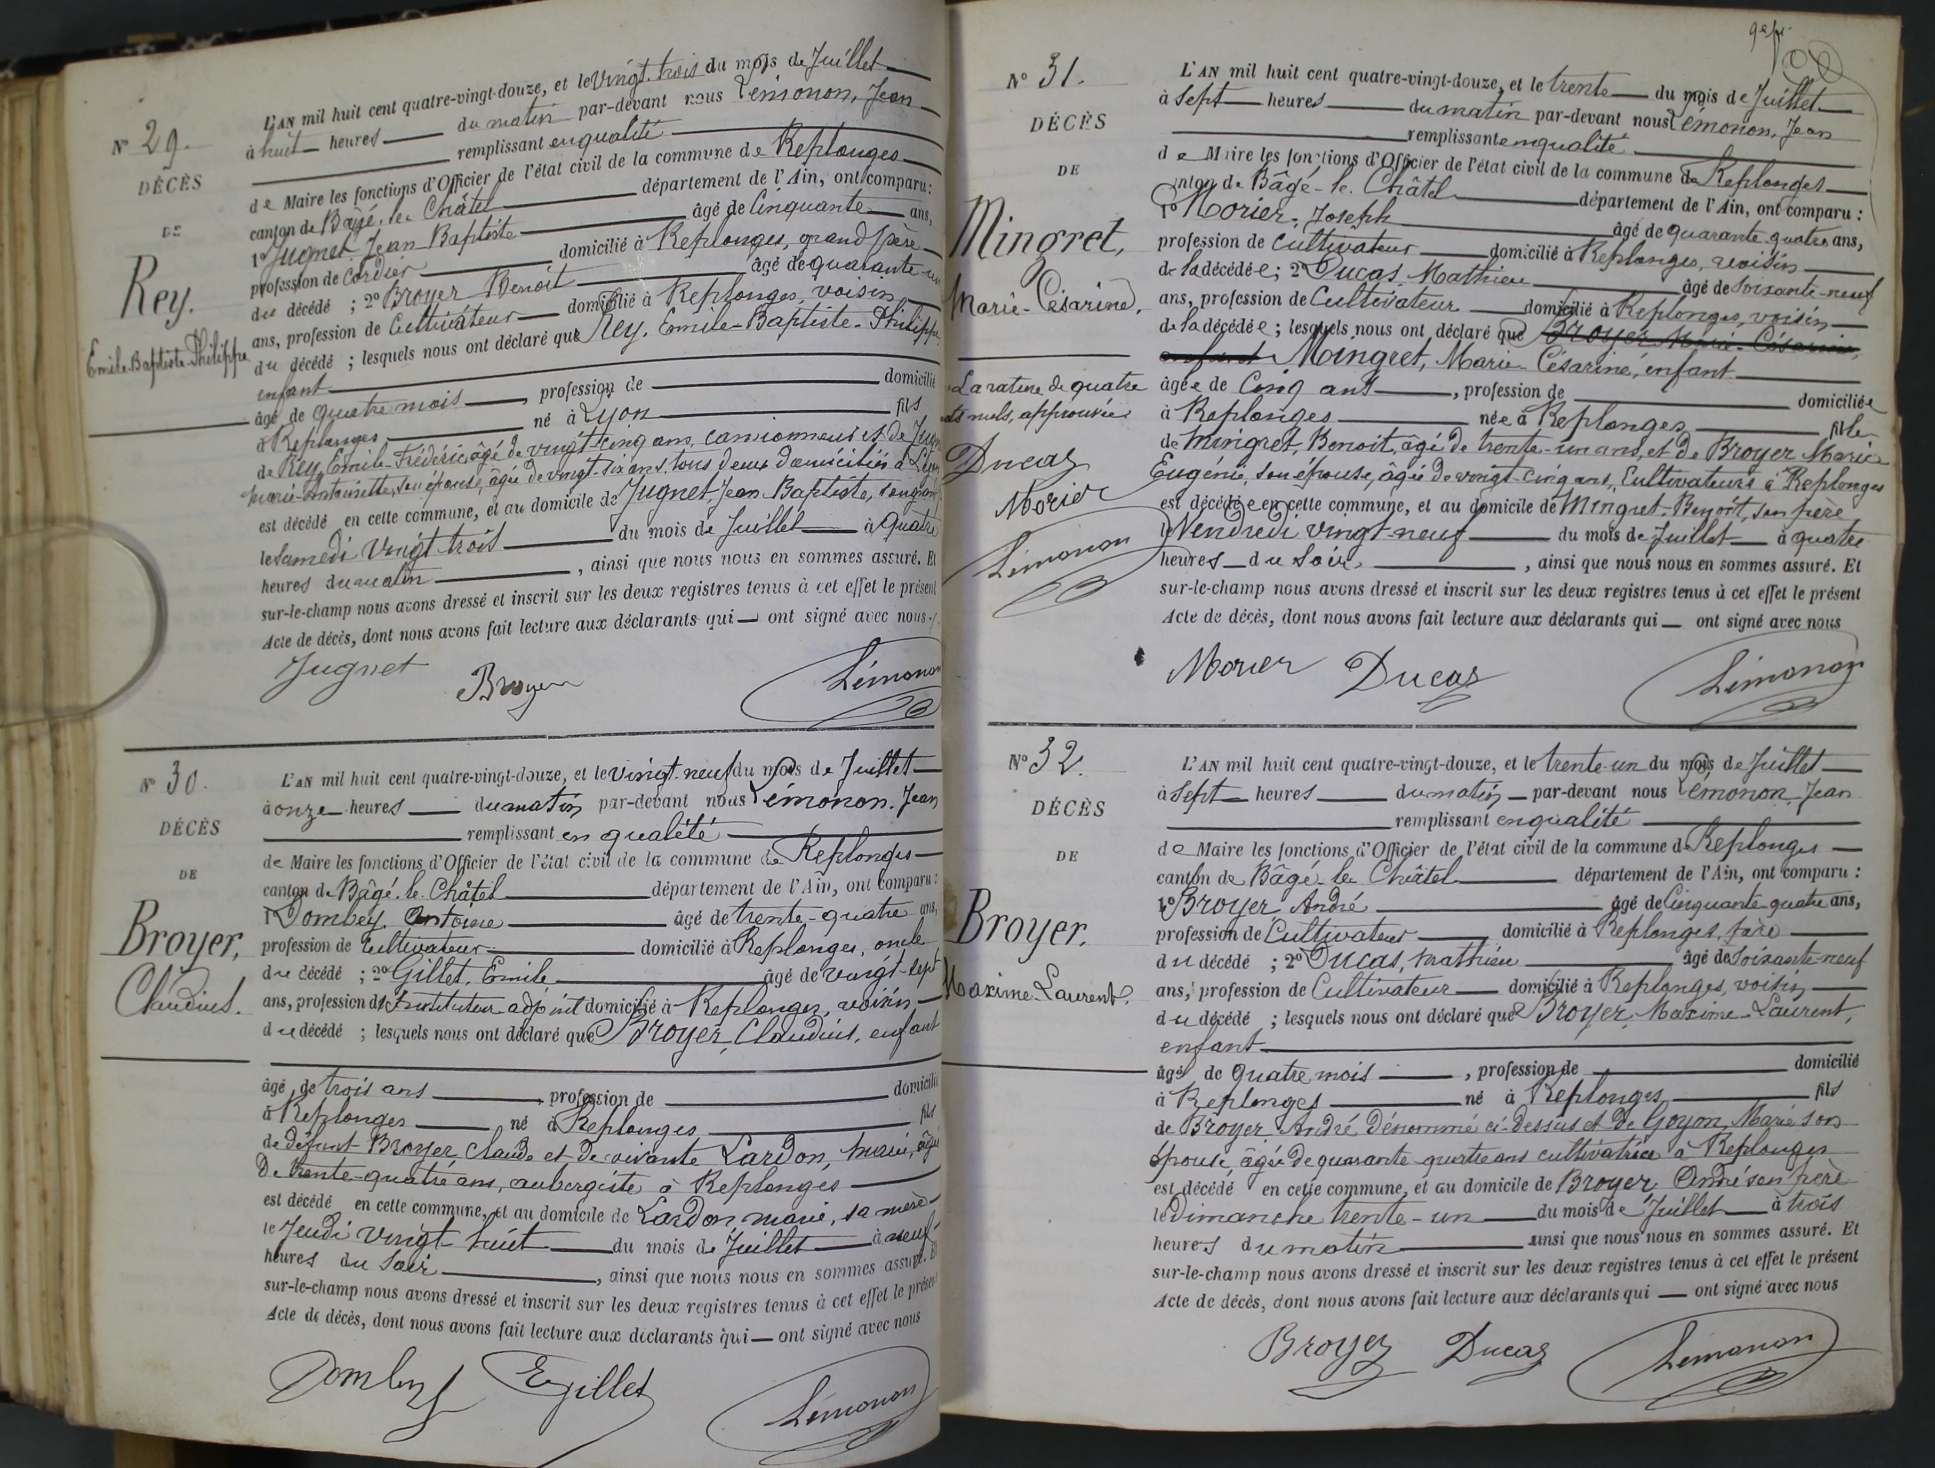 N° 29.
DÉCÈS
DE
Rey.
Emile-Baptiste-Philippe
L'AN mil huit cent quatre-vingt-douze, et le vingt-trois du mois de Juillet
à huit heures du matin par-devant nous Lémonon, Jean
remplissant en qualité
de Maire les fonctions d'Officier de l'état civil de la commune de Replonges
canton de Bâgé-le-Châtel département de l'Ain, ont comparu :
1° Jugnet Jean-Baptiste âgé de Cinquante ans,
profession de cordier domicilié à Replonges, grand père
du décédé ; 2° Broyer Benoît âgé de quarante-un
ans, profession de Cultivateur domicilié à Replonges, voisin
du décédé ; lesquels nous ont déclaré que Rey, Emile-Baptiste-Philippe,
enfant
âgé de quatre mois, profession de domicilié
à Replonges né à Lyon fils
de Rey Emile-Frédéric, âgé de vingt-cinq ans, camionneur et de Jugnet
Marie-Antoinette, son épouse, âgée de vingt-six ans, tous deux domiciliés à Lyon
est décédé en cette commune, et au domicile de Jugnet Jean Baptiste, son grand
le Samedi Vingt trois du mois de Juillet à quatre
heures du matin, ainsi que nous nous en sommes assuré. Et
sur-le-champ nous avons dressé et inscrit sur les deux registres tenus à cet effet le présent
Acte de décès, dont nous avons fait lecture aux déclarants qui ont signé avec nous.
Jugnet Broyer Lémonon
N° 30.
DÉCÈS
DE
Broyer,
Claudius.
L'AN mil huit cent quatre-vingt-douze, et le vingt-neuf du mois de Juillet
à onze heures du matin par-devant nous Lémonon, Jean
remplissant en qualité
de Maire les fonctions d'Officier de l'état civil de la commune de Replonges
canton de Bâgé-le-Châtel département de l'Ain, ont comparu :
1° Dombey Antoine âgé de trente-quatre ans,
profession de Cultivateur domicilié à Replonges, oncle
du décédé ; 2° Gillet, Emile âgé de vingt-sept
ans, profession d'Instituteur adjoint domicilié à Replonges, voisin
du décédé ; lesquels nous ont déclaré que Broyer, Claudius, enfant
âgé de trois ans, profession de domicilié
à Replonges né à Replonges fils
de défunt Broyer Claude et de vivante Lardon, Marie, âgée
de trente-quatre ans, aubergiste à Replonges
est décédé en cette commune, et au domicile de Lardon Marie, sa mère
le Jeudi vingt-huit du mois de Juillet à neuf
heures du soir, ainsi que nous nous en sommes assuré. Et
sur-le-champ nous avons dressé et inscrit sur les deux registres tenus à cet effet le présent
Acte de décès, dont nous avons fait lecture aux déclarants qui ont signé avec nous
Dombey E Gillet Lémonon
N° 31.
DÉCÈS
DE
Mingret,
Marie-Césarine.
La rature de quatre
mots nuls, approuvée
Ducas
Morier
Lémonon
L'AN mil huit cent quatre-vingt-douze, et le trente du mois de Juillet
à sept heures du matin par-devant nous Lémonon, Jean
remplissant en qualité
de Maire les fonctions d'Officier de l'état civil de la commune de Replonges
canton de Bâgé-le-Châtel département de l'Ain, ont comparu :
1° Morier, Joseph âgé de quarante-quatre ans,
profession de Cultivateur domicilié à Replonges, voisin
de la décédée ; 2° Ducas, Mathieu âgé de soixante-neuf
ans, profession de Cultivateur domicilié à Replonges, voisin
de la décédée ; lesquels nous ont déclaré que Broyer Marie-Césarine,
enfant Mingret, Marie-Césarine, enfant
âgée de Cinq ans, profession de domiciliée
à Replonges née à Replonges fille
de Mingret, Benoît, âgé de trente-un ans, et de Broyer Marie
Eugénie, son épouse, âgée de vingt-cinq ans, Cultivateurs à Replonges
est décédée en cette commune, et au domicile de Mingret-Benoît, son père
le Vendredi vingt-neuf du mois de Juillet à quatre
heures du soir, ainsi que nous nous en sommes assuré. Et
sur-le-champ nous avons dressé et inscrit sur les deux registres tenus à cet effet le présent
Acte de décès, dont nous avons fait lecture aux déclarants qui ont signé avec nous
Morier Ducas Lémonon
N° 32.
DÉCÈS
DE
Broyer.
Maxime-Laurent.
L'AN mil huit cent quatre-vingt-douze, et le trente-un du mois de Juillet
à sept heures du matin par-devant nous Lémonon, Jean
remplissant en qualité
de Maire les fonctions d'Officier de l'état civil de la commune de Replonges
canton de Bâgé-le-Châtel département de l'Ain, ont comparu :
1° Broyer, André âgé de Cinquante-quatre ans,
profession de Cultivateur domicilié à Replonges, père
du décédé ; 2° Ducas, Mathieu âgé de soixante-neuf
ans, profession de Cultivateur domicilié à Replonges, voisin
du décédé ; lesquels nous ont déclaré que Broyer, Maxime-Laurent,
enfant
âgé de quatre mois, profession de domicilié
à Replonges né à Replonges fils
de Broyer André dénommé ci-dessus et de Goyon, Marie son
épouse, âgée de quarante-quatre ans cultivatrice à Replonges
est décédé en cette commune, et au domicile de Broyer André son père
le Dimanche trente-un du mois de Juillet à trois
heures du matin ainsi que nous nous en sommes assuré. Et
sur-le-champ nous avons dressé et inscrit sur les deux registres tenus à cet effet le présent
Acte de décès, dont nous avons fait lecture aux déclarants qui ont signé avec nous
Broyer Ducas Lémonon